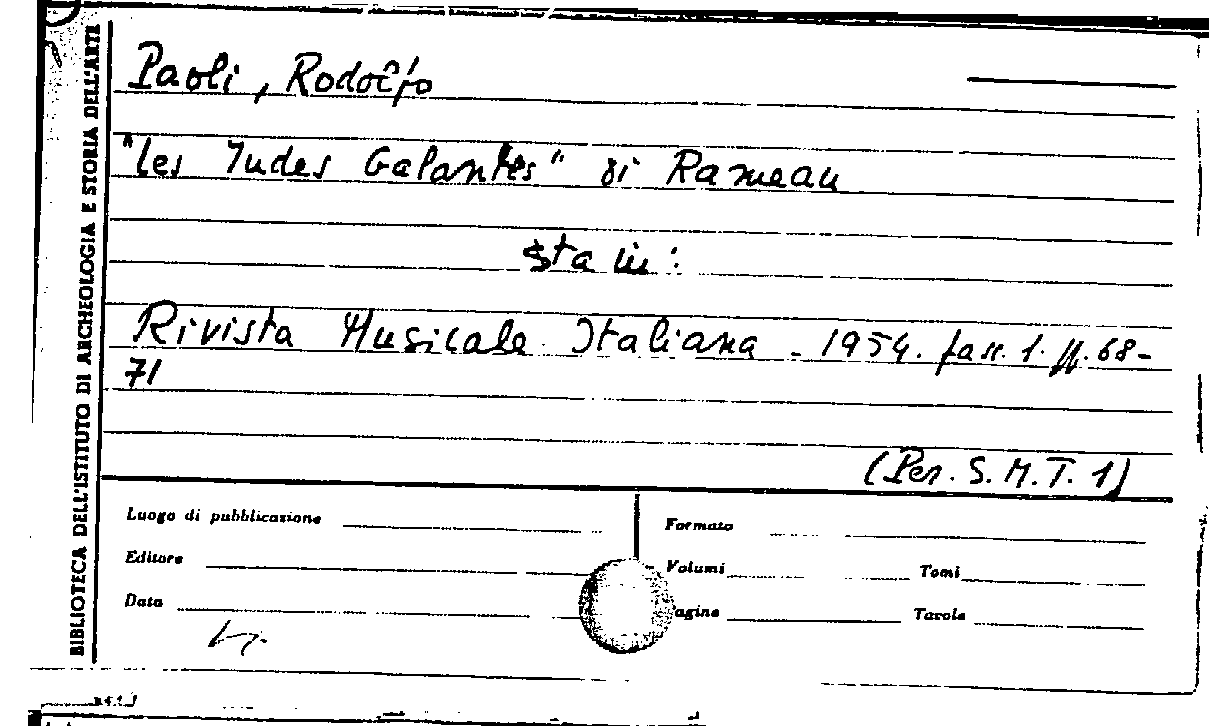 BIBLIOTECA DELL'ISTITUTO DI ARCHEOLOGIA E STORIA DELL'ARTE
Paoli, Rodolfo
"Les Indes Galantes" di Rameau
Sta in:
Rivista Musicale Italiana - 1954. fasc. 1. pp. 68-
71
(Per. S. M. T. 1)
Luogo di pubblicazione
Formato
Editore
Volumi
Tomi
Data
agine
Tavole